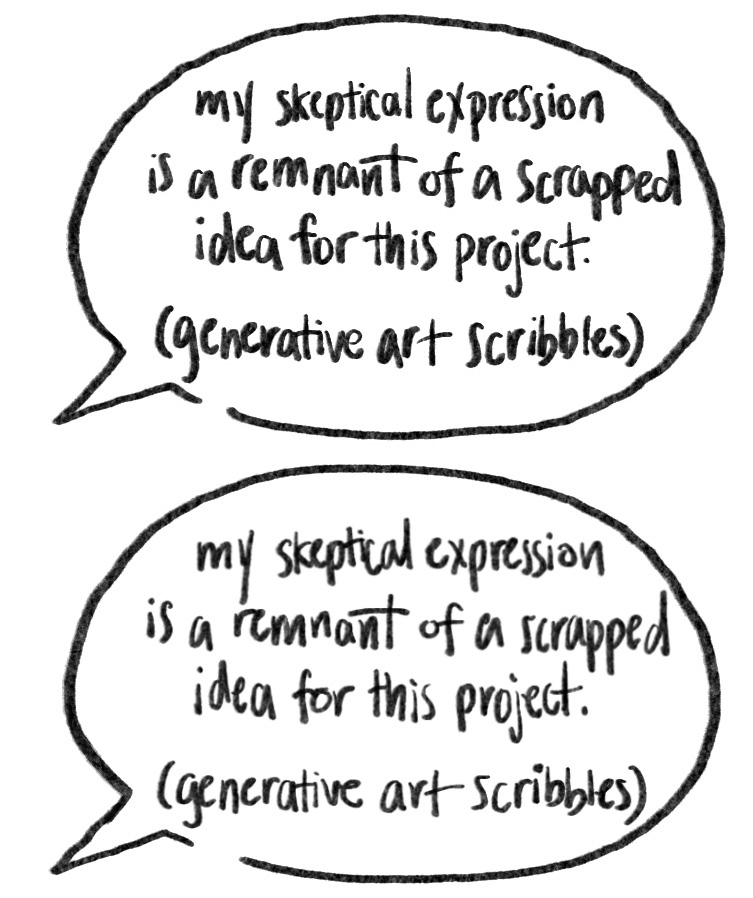 my skeptical expression
is a remnant of a scrapped
idea for this project.
(generative art scribbles)
my skeptical expression
is a remnant of a scrapped
idea for this project.
(generative art scribbles)